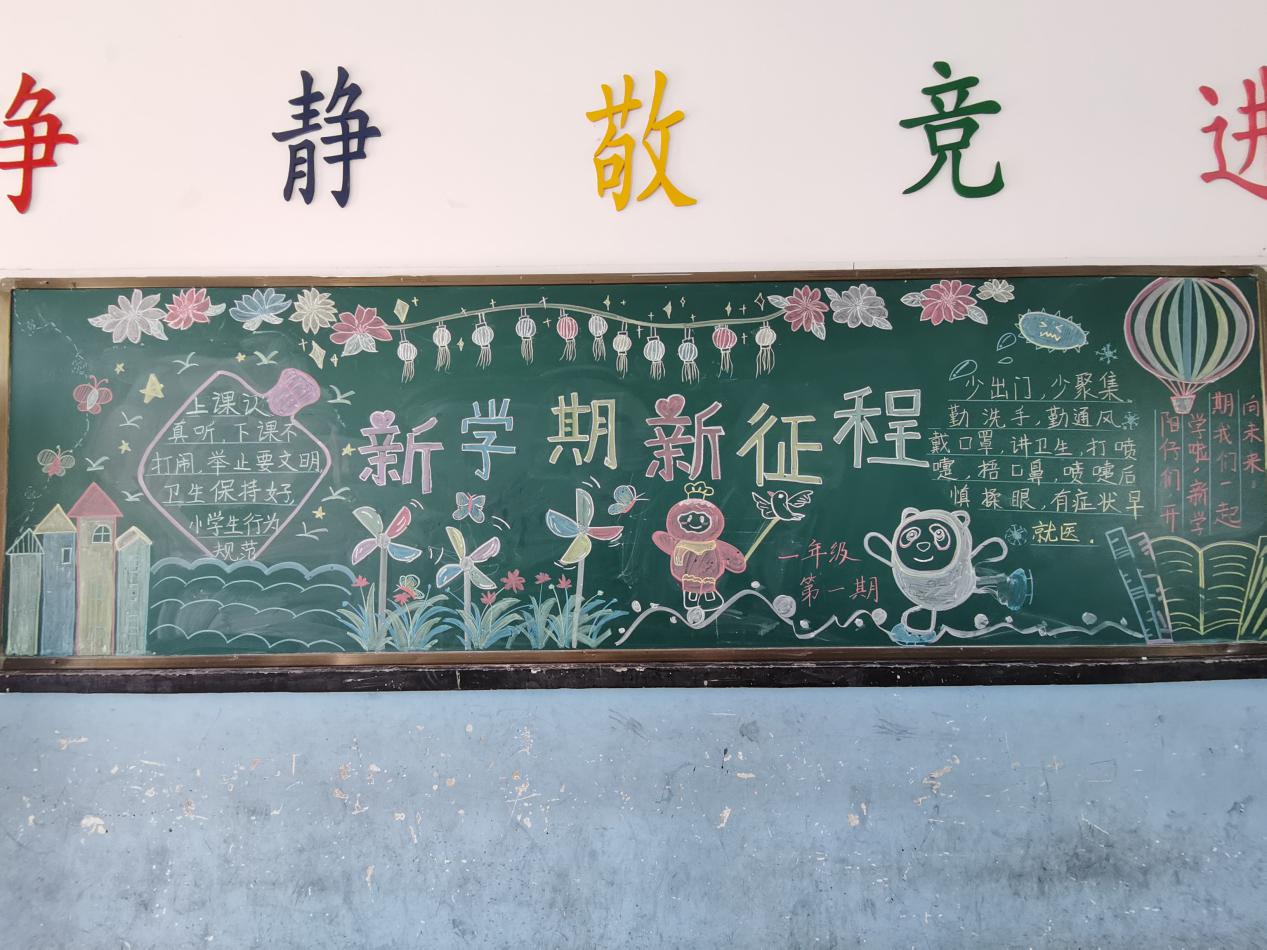 静 敬 竞 进
新学期新征程
上课认
真听,下课不
打闹,举止要文明
卫生保持好,
小学生行为
规范
一年级
第一期
少出门,少聚集,
勤洗手,勤通风,
戴口罩,讲卫生,打喷
嚏,捂口鼻,喷嚏后
慎揉眼,有症状早
就医.
阳仔们,开
学啦,新学
期我们一起
向未来